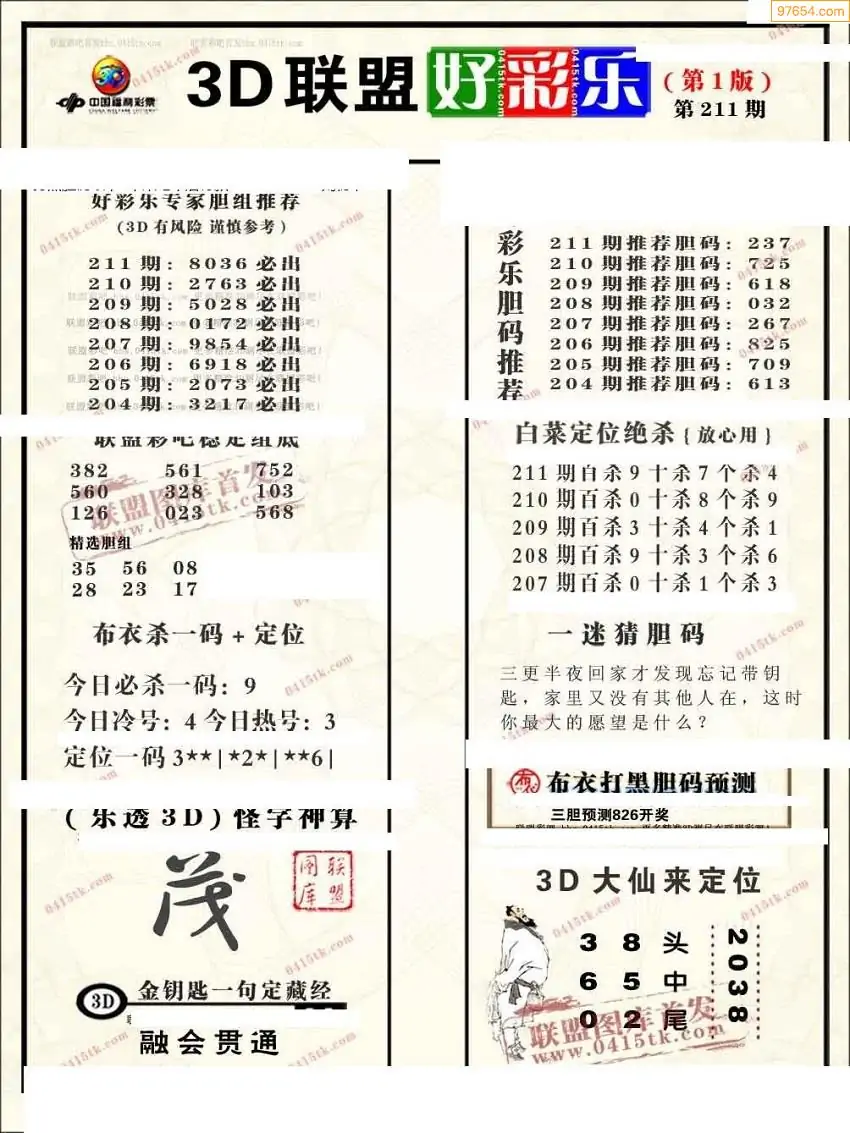 97654.com
中国福利彩票
CHINA WELFARE LOTTERY
3D联盟好彩乐
(第1版)
第211期
好彩乐专家胆组推荐
(3D有风险 谨慎参考)
211期:8036必出
210期:2763必出
209期:5028必出
208期:0172必出
207期:9854必出
206期:6918必出
205期:2073必出
204期:3217必出
联盟彩吧稳定组底
382 561 752
560 328 103
126 023 568
精选胆组
35 56 08
28 23 17
布衣杀一码+定位
今日必杀一码:9
今日冷号:4 今日热号:3
定位一码3**|*2*|**6|
(乐透3D)怪字神算
茂
联盟图库
3D
金钥匙一句定藏经
融会贯通
彩乐胆码推荐
211期推荐胆码:237
210期推荐胆码:725
209期推荐胆码:618
208期推荐胆码:032
207期推荐胆码:267
206期推荐胆码:825
205期推荐胆码:709
204期推荐胆码:613
白菜定位绝杀{放心用}
211期百杀9十杀7个杀4
210期百杀0十杀8个杀9
209期百杀3十杀4个杀1
208期百杀9十杀3个杀6
207期百杀0十杀1个杀3
一迷猜胆码
三更半夜回家才发现忘记带钥
匙，家里又没有其他人在，这时
你最大的愿望是什么？
布 布衣打黑胆码预测
三胆预测826开奖
3D大仙来定位
3 8 头
6 5 中
0 2 尾
2038
联盟图库首发
www.0415tk.com